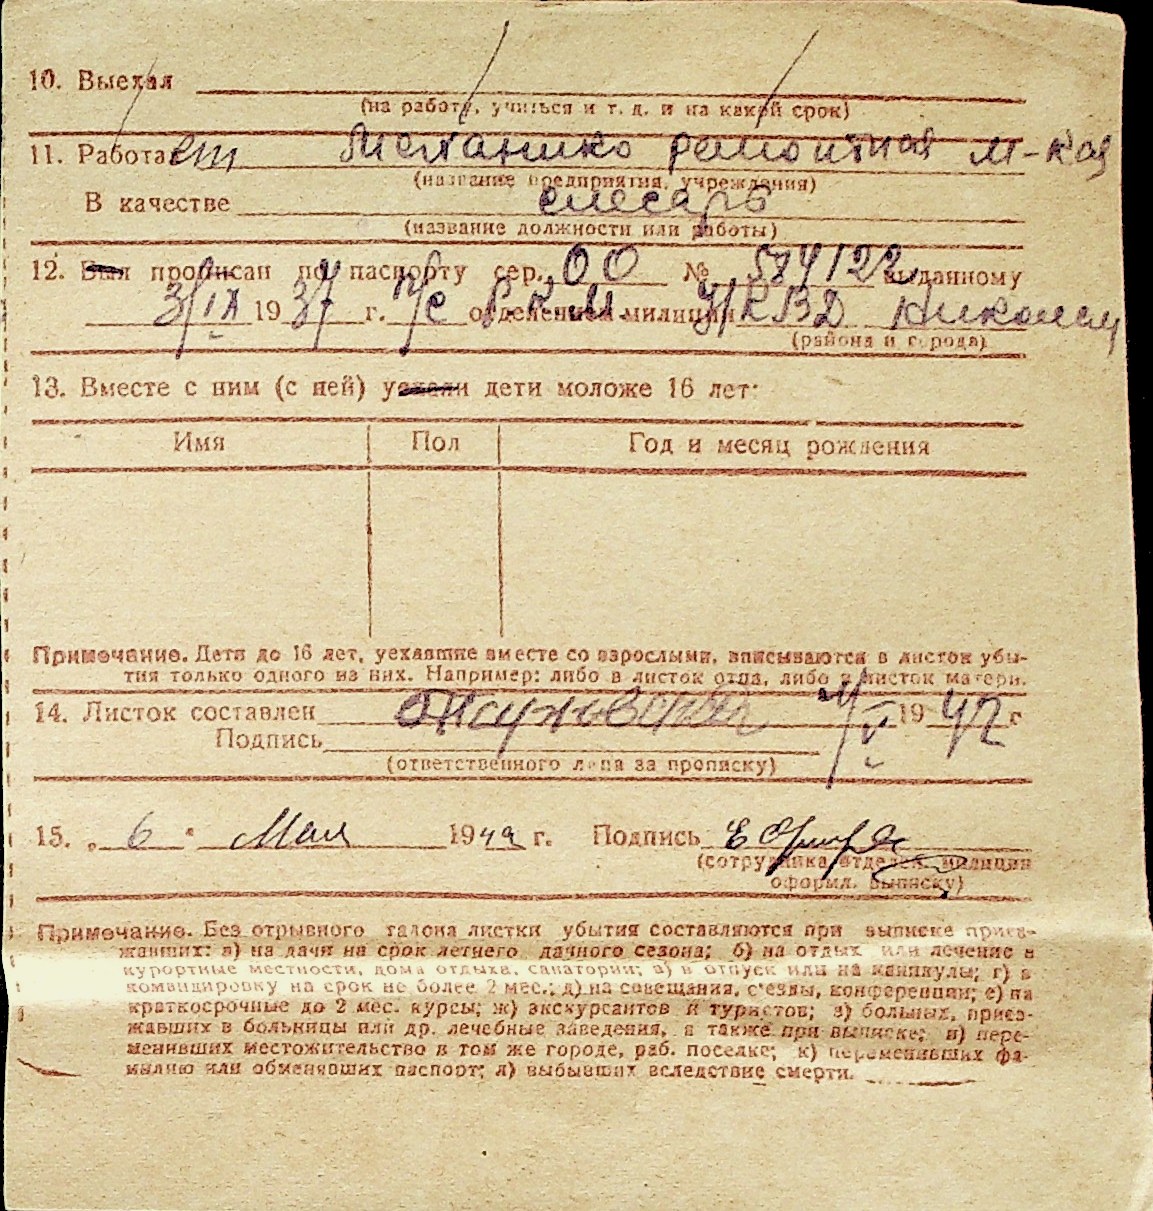 10. Выехал
(на работу, учиться и т. д. и на какой срок)
11. Работает Механико ремонтная м-кая
(название предприятия, учреждения)
В качестве слесарь
(название должности или работы)
12. Был прописан по паспорту сер. ОО № 584122 выданному
3/IX 1937 г. п/с Р.К.М. отделением милиции У/КВД Николаем
(района и города)
13. Вместе с ним (с ней) уехали дети моложе 16 лет:
Имя Пол Год и месяц рождения
Примечание. Дети до 16 лет, уехавшие вместе со взрослыми, вписываются в листок убы-
тия только одного из них. Например: либо в листок отца, либо в листок матери.
14. Листок составлен 4/V 1942 г
Подпись
(ответственного лица за прописку)
15. „ 6 " Мая 1942 г. Подпись
(сотрудника отделен. милиции
оформл. выписку)
Примечание. Без отрывного талона листки убытия составляются при выписке приез-
жавших: а) на дачи на срок летнего дачного сезона; б) на отдых или лечение в
курортные местности, дома отдыха, санатории; в) в отпуск или на каникулы; г) в
командировку на срок не более 2 мес.; д) на совещания, с'езды, конференции; е) на
краткосрочные до 2 мес. курсы; ж) экскурсантов и туристов; з) больных, приез-
жавших в больницы или др. лечебные заведения, а также при выписке; и) пере-
менивших местожительство в том же городе, раб. поселке; к) переменивших фа-
милию или обменявших паспорт; л) выбывших вследствие смерти.